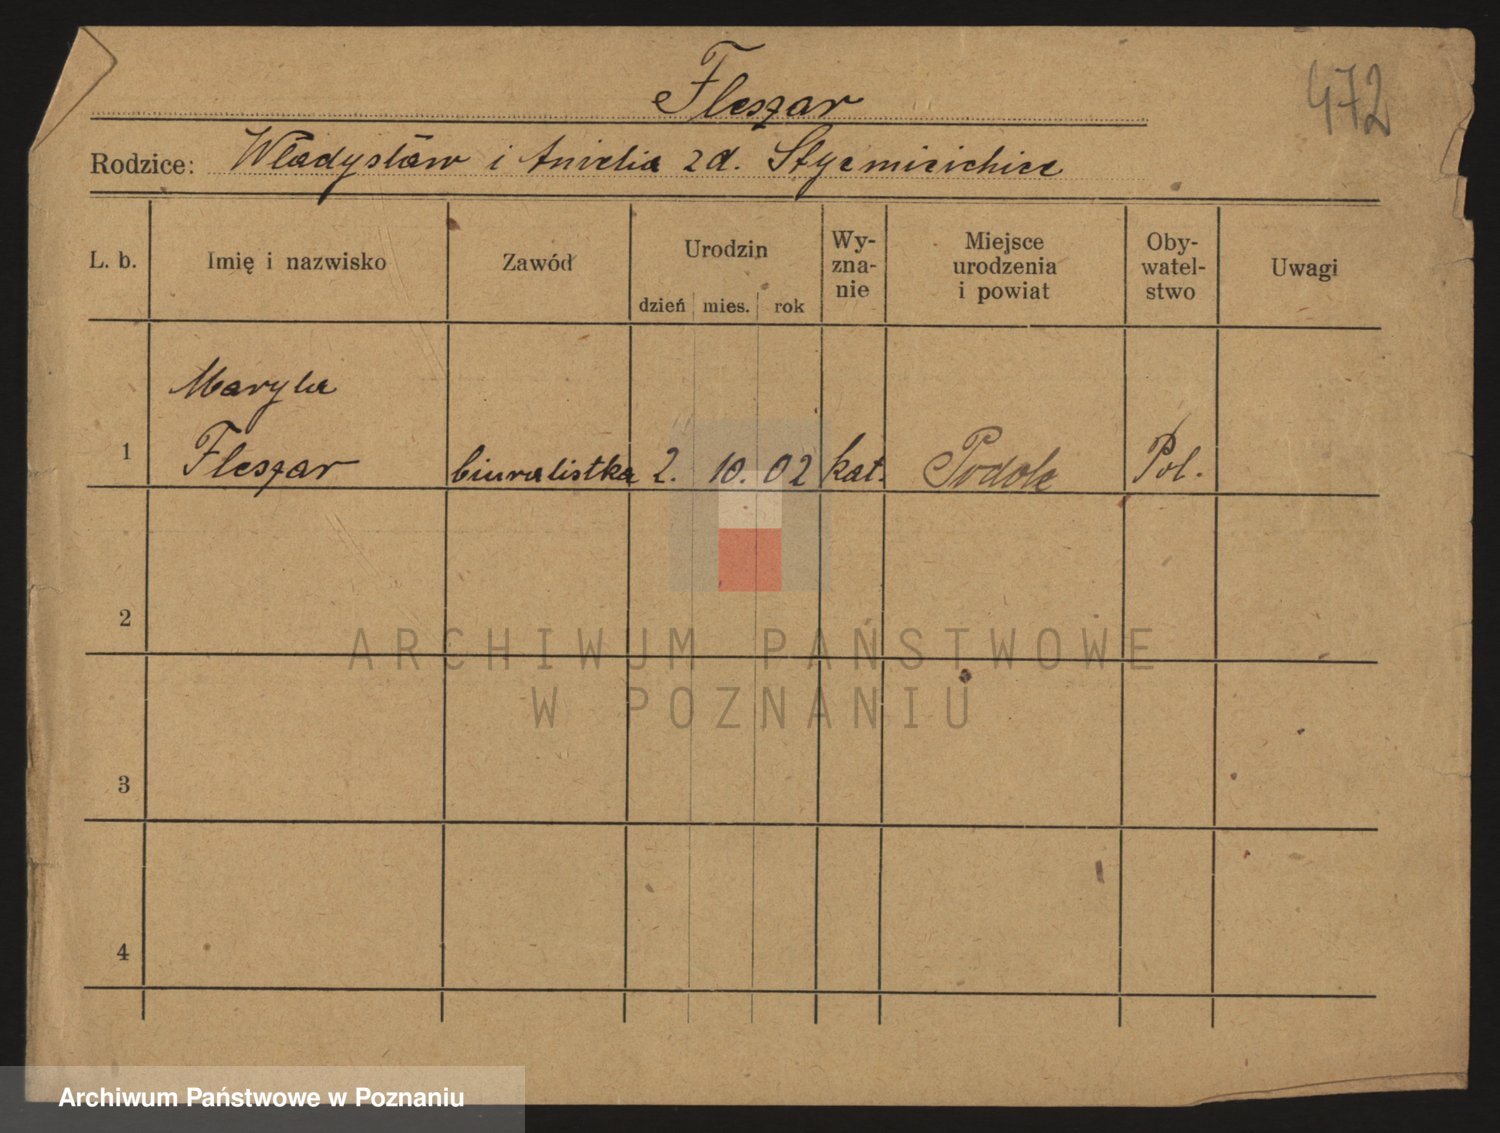 Fleszar
472
Rodzice: Władysław i Aniela zd.
L. b.
Imię i nazwisko
Zawód
Urodzin
dzień mies. rok
Wy-
zna-
nie
Miejsce
urodzenia
i powiat
Oby-
watel-
stwo
Uwagi
1
Maryla
Fleszar
biuralistka
2. 10. 02
kat.
Podole
Pol.
2
3
4
ARCHIWUM PAŃSTWOWE
W POZNANIU
Archiwum Państwowe w Poznaniu